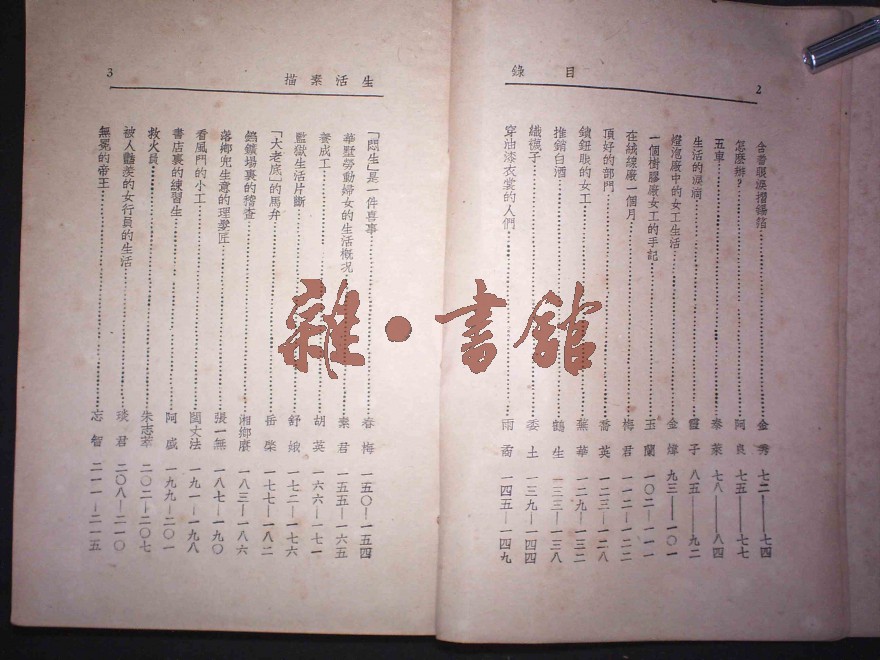 目錄
2
含着眼淚摺錫箔 金秀 七二——七四
怎麼辦？ 阿良 七五——七七
五車 泰萊 七八——八四
生活的淚痕 霞子 八五——九二
燈泡廠中的女工生活 金煒 九三——一〇一
一個樹膠廠女工的手記 玉蘭 一〇二—一一一
在絨線廠一個月 梅君 一一二—一二二
頂好的部門 喬英 一二三—一二八
鎖鈕眼的女工 葉華 一二九—一三二
推銷白酒 鶴生 一三三—一三八
織襪子 委土 一三九—一四四
穿油漆衣裳的人們 雨 一四五—一四九
生活素描
3
「悶生」是一件喜事 春梅 一五〇—一五四
華墅勞動婦女的生活概况 素君 一五五—一六五
養成工 胡英 一六六—一七一
監獄生活片斷 舒娥 一七二—一七六
「大老底」的馬弁 岳棨 一七七—一八二
鎢鑛場裏的稽查 湘鄉 一八三—一八六
落鄉兜生意的理髮匠 張一無 一八七—一九〇
看風門的小工 閻文法 一九一—一九八
書店裏的練習生 阿戚 一九九—二〇一
救火員 朱志萃 二〇二—二〇七
被人豔羨的女行員的生活 琰君 二〇八—二一〇
無冕的帝王 忘智 二一一—二一五
雜·書館